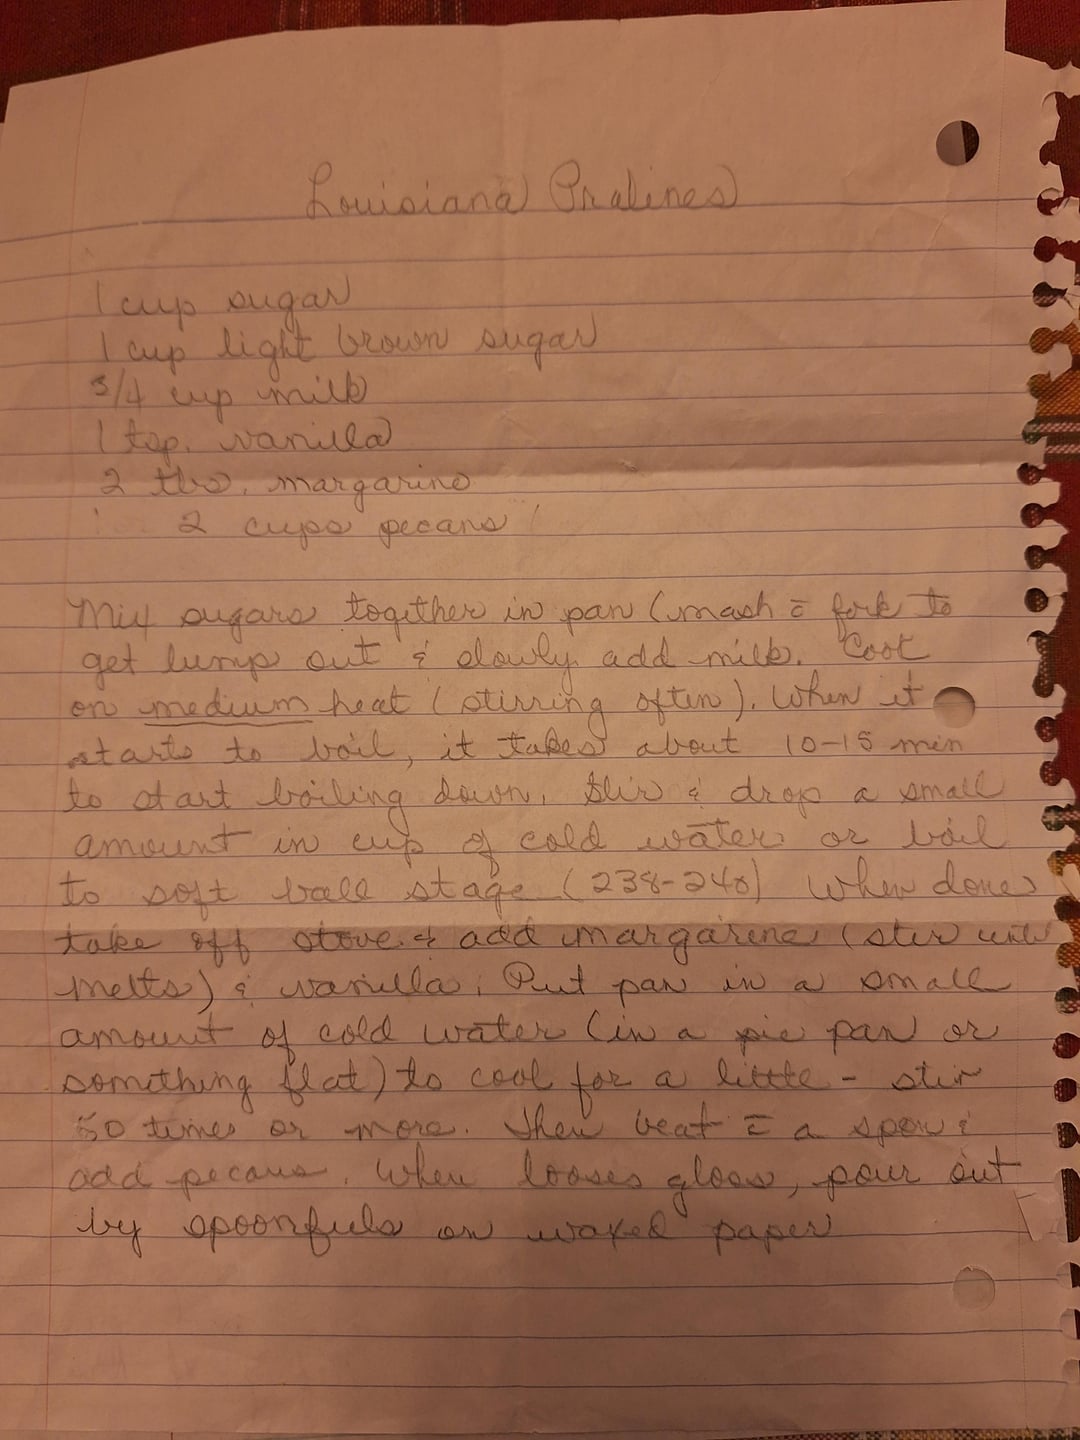 Louisiana Pralines
1 cup sugar
1 cup light brown sugar
3/4 cup milk
1 tsp. vanilla
2 tbs. margarine
2 cups pecans
Mix sugars together in pan (mash c̄ fork to
get lump out & slowly add milk. Cook
on medium heat (stirring often). When it
starts to boil, it takes about 10-15 min
to start boiling down. Stir & drop a small
amount in cup of cold water or boil
to soft ball stage (238-240) When done
take off stove & add margarine (stir until
melts) & vanilla. Put pan in a small
amount of cold water (in a pie pan or
something flat) to cool for a little - stir
50 times or more. Then beat c̄ a spoon &
add pecans. When looses gloss, pour out
by spoonfuls on waxed paper